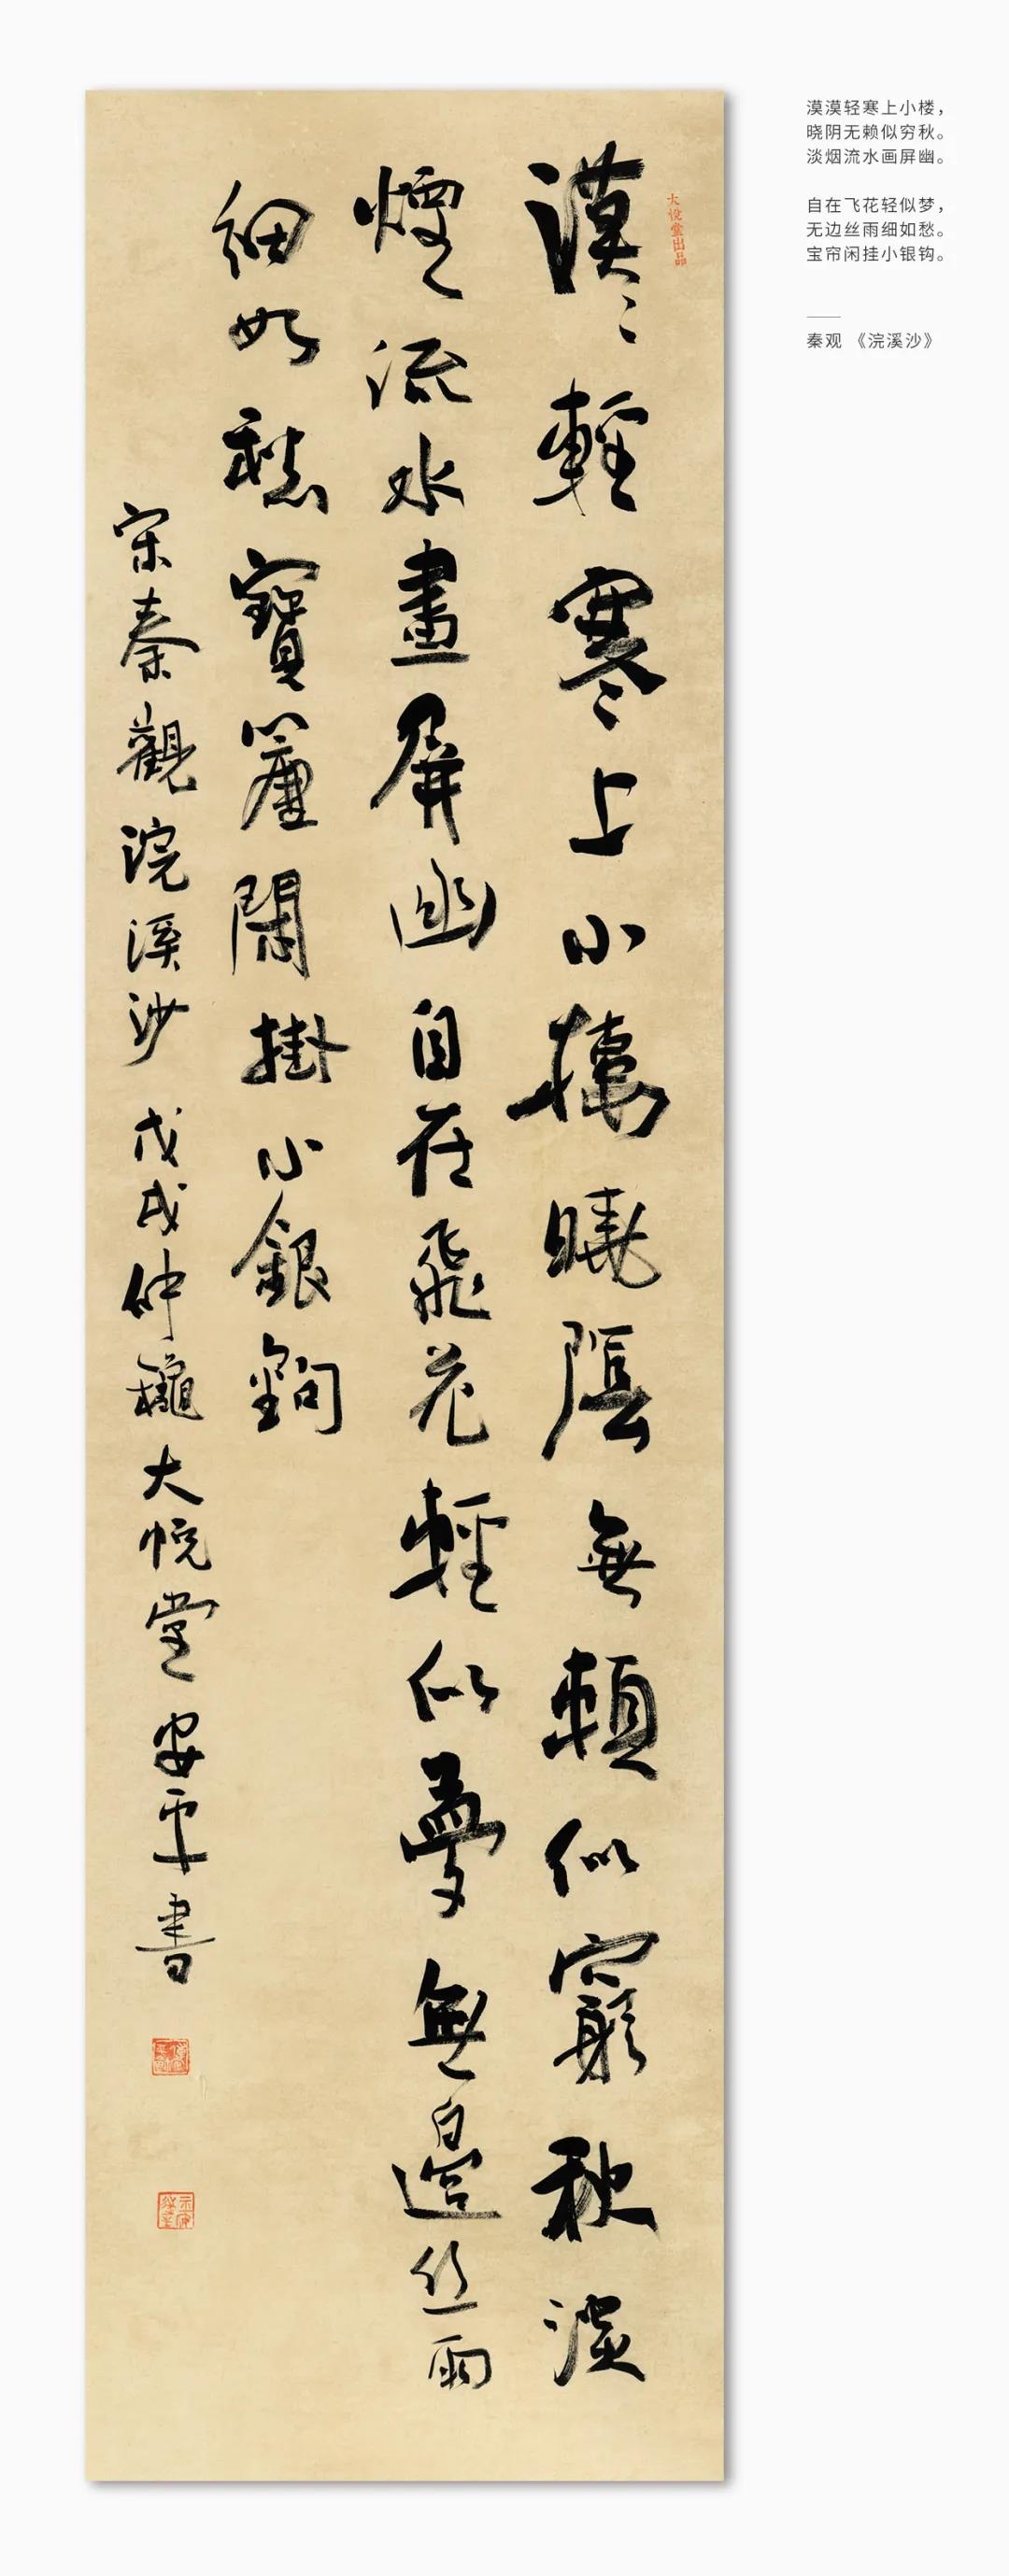 漠〻輕寒上小樓曉陰無賴似窮秋淡
煙流水畫屏幽自在飛花輕似夢無邊絲雨
細如愁寶簾閑掛小銀鉤
宋秦觀浣溪沙戊戌仲龝大悅堂安平書
大悅堂出品
漠漠轻寒上小楼，
晓阴无赖似穷秋。
淡烟流水画屏幽。
自在飞花轻似梦，
无边丝雨细如愁。
宝帘闲挂小银钩。
秦观 《浣溪沙》